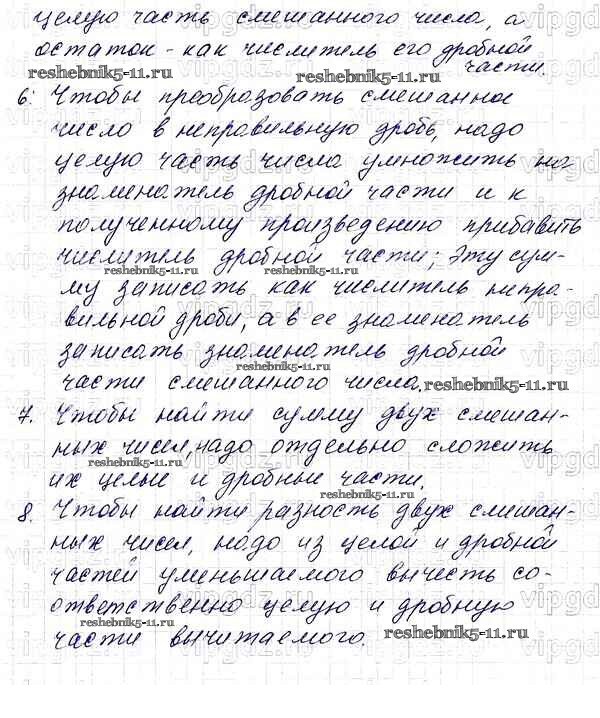 целую часть смешанного числа, а
остаток - как числитель его дробной
части.
reshebnik5-11.ru reshebnik5-11.ru
6. Чтобы преобразовать смешанное
число в неправильную дробь, надо
целую часть числа умножить на
знаменатель дробной части и к
полученному произведению прибавить
числитель дробной части; Эту сум-
reshebnik5-11.ru reshebnik5-11.ru
му записать как числитель непра-
вильной дроби, а в ее знаменатель
записать знаменатель дробной
reshebnik5-11.ru
части смешанного числа. reshebnik5-11.ru
7. Чтобы найти сумму двух смешан-
ных чисел, надо отдельно сложить
reshebnik5-11.ru
их целые и дробные части.
reshebnik5-11.ru
8. Чтобы найти разность двух смешан-
ных чисел, надо из целой и дробной
частей уменьшаемого вычесть со-
ответственно целую и дробную
reshebnik5-11.ru
части вычитаемого. reshebnik5-11.ru